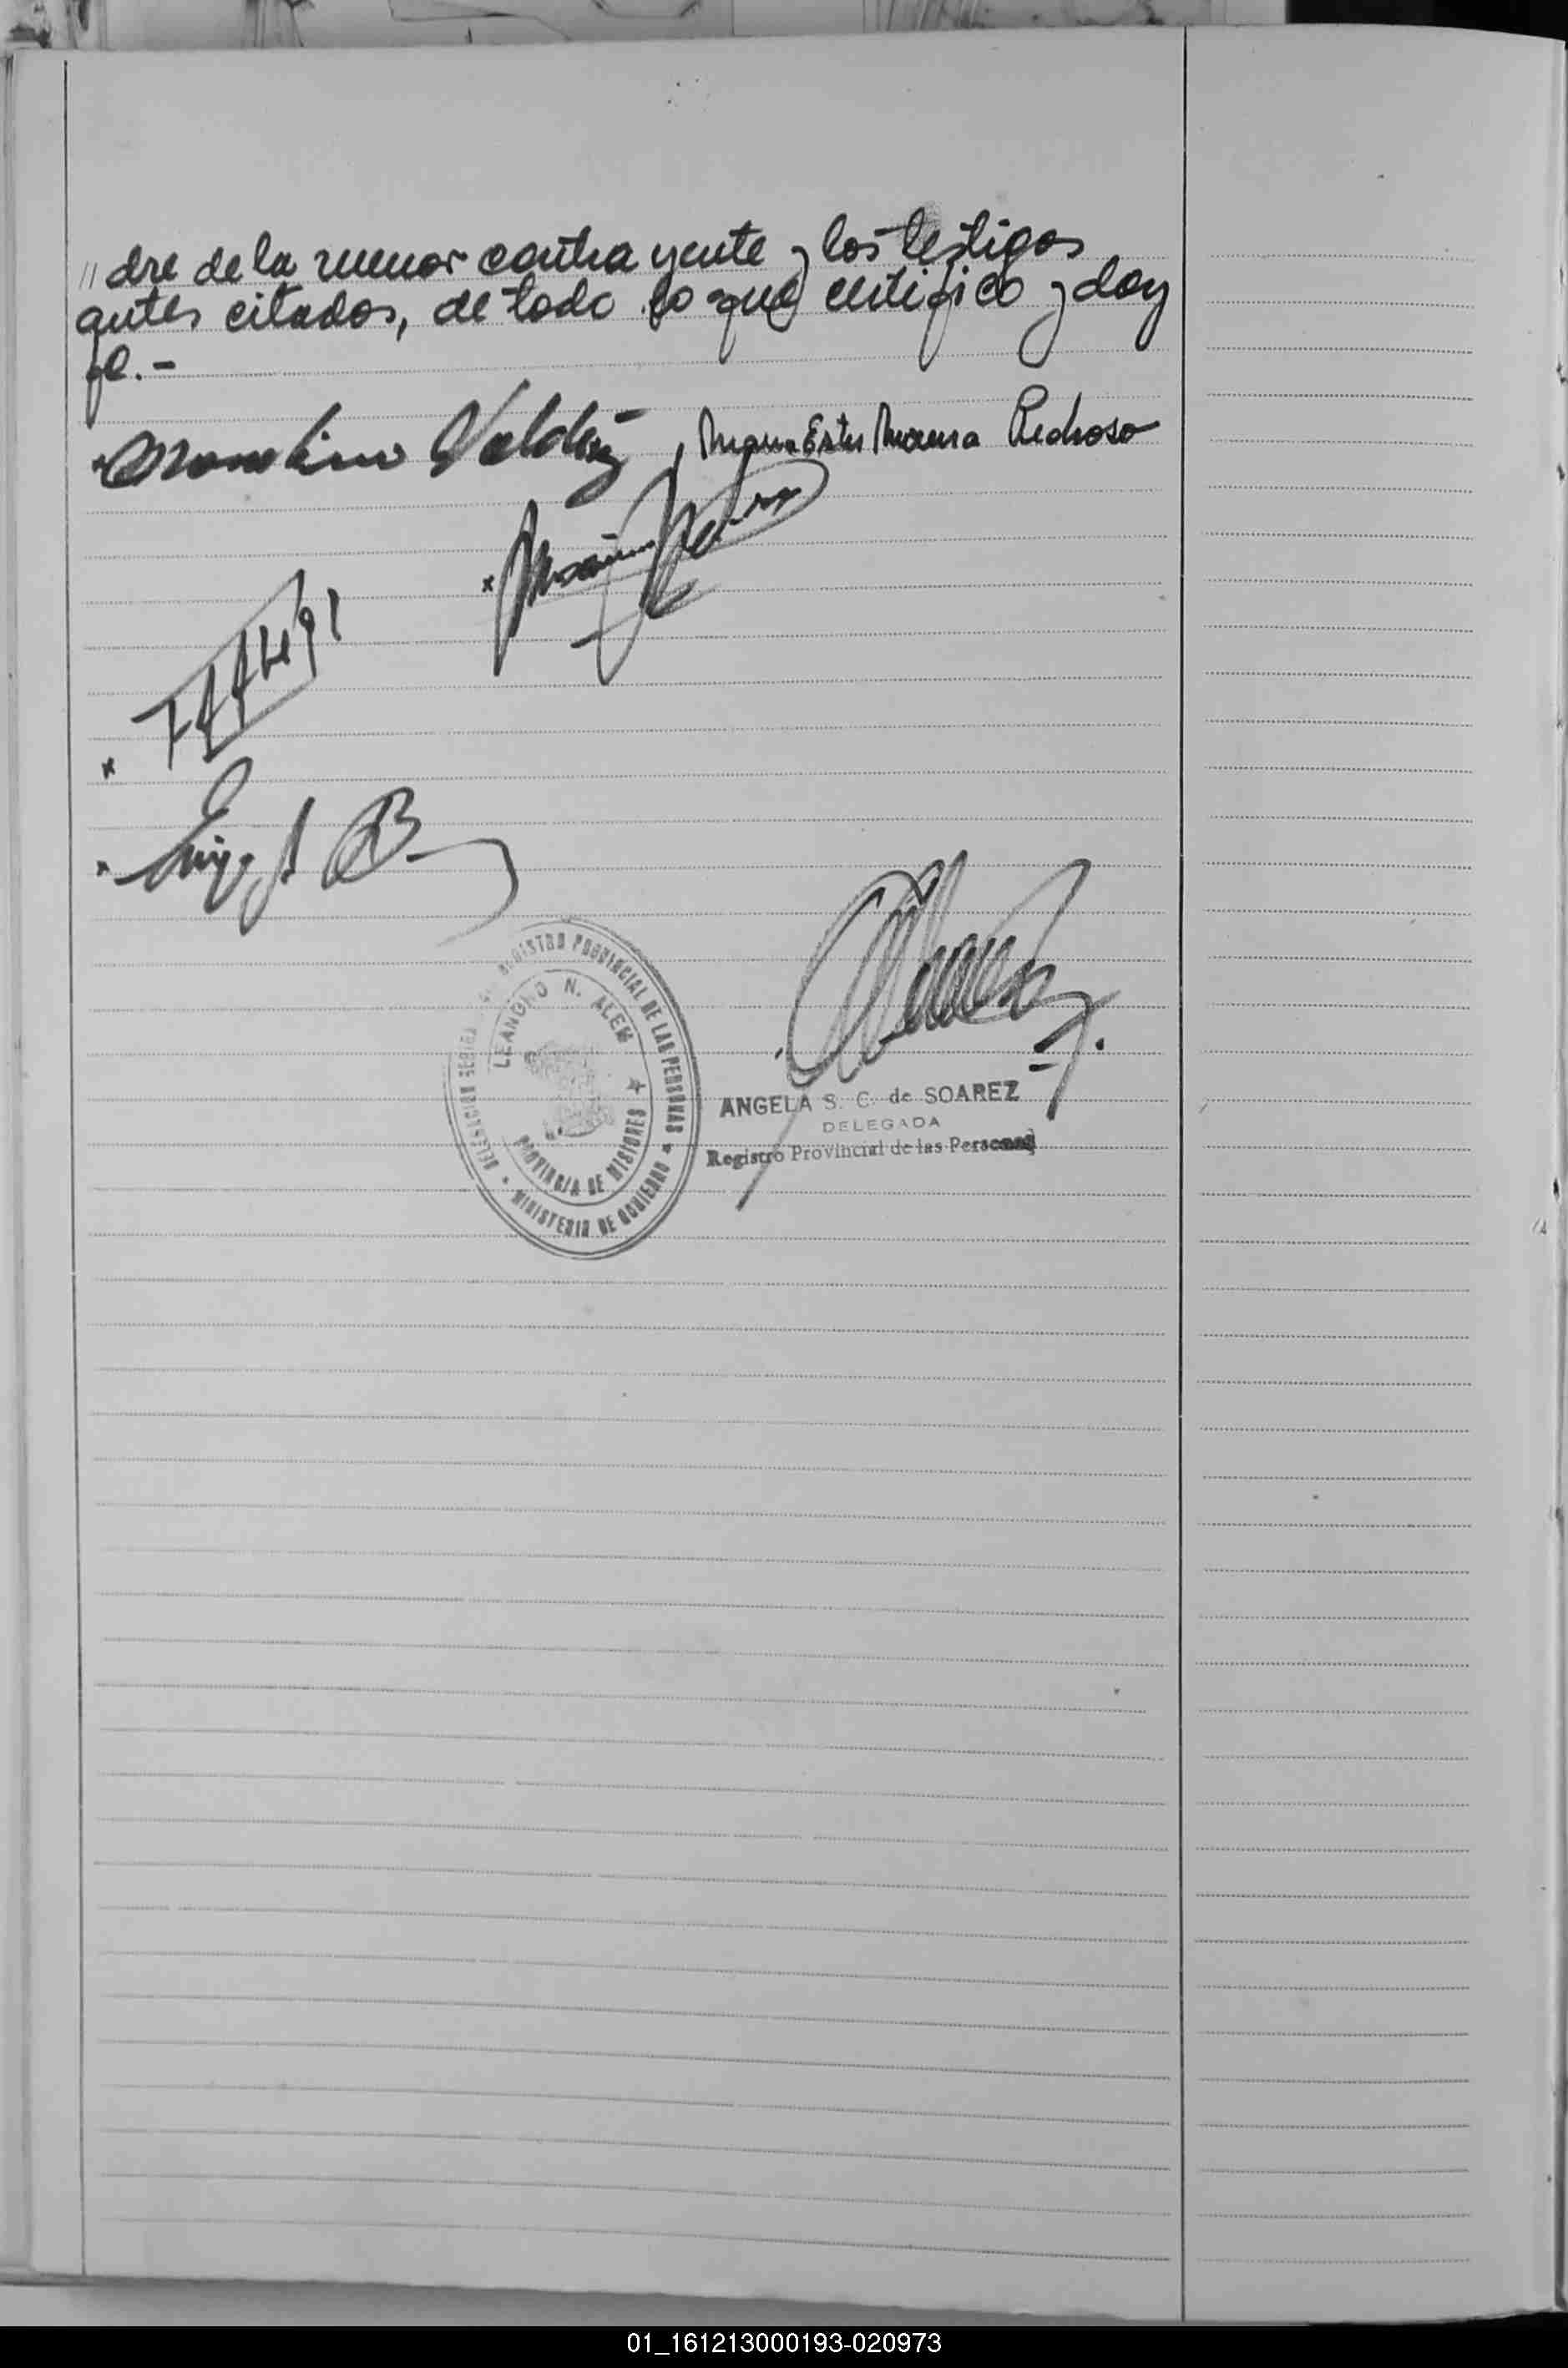 // dre de la menor contrayente y los testigos
antes citados, de todo lo que certifico y doy
fe.-
Valdéz
Maria Ester Moreira Pedroso
REGISTRO PROVINCIAL DE LAS PERSONAS
MINISTERIO DE GOBIERNO
DELEGACION
LEANDRO N. ALEM
PROVINCIA DE MISIONES
ANGELA S. C. de SOAREZ
DELEGADA
Registro Provincial de las Personas
01_161213000193-020973